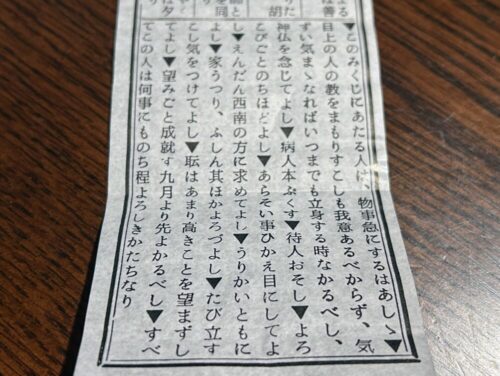 よる
は善
りた
胡
師と
を同
は夕
▼このみくじにあたる人は、物事急にするはあしゝ▼
目上の人の教をまもりすこしも我意あるべからず、気
ずい気まゝなればいつまでも立身する時なかるべし、
神仏を念じてよし▼病人本ぷくす▼待人おそし▼よろ
こびごとのちほどよし▼あらそい事ひかえ目にしてよ
し▼えんだん西南の方に求めてよし▼うりかいともに
よし▼家うつり、ふしん其ほかよろづよし▼たび立す
こし気をつけてよし▼耺はあまり高きことを望まずし
てよし▼望みごと成就す九月より先よかるべし▼すべ
てこの人は何事にものち程よろしきかたちなり